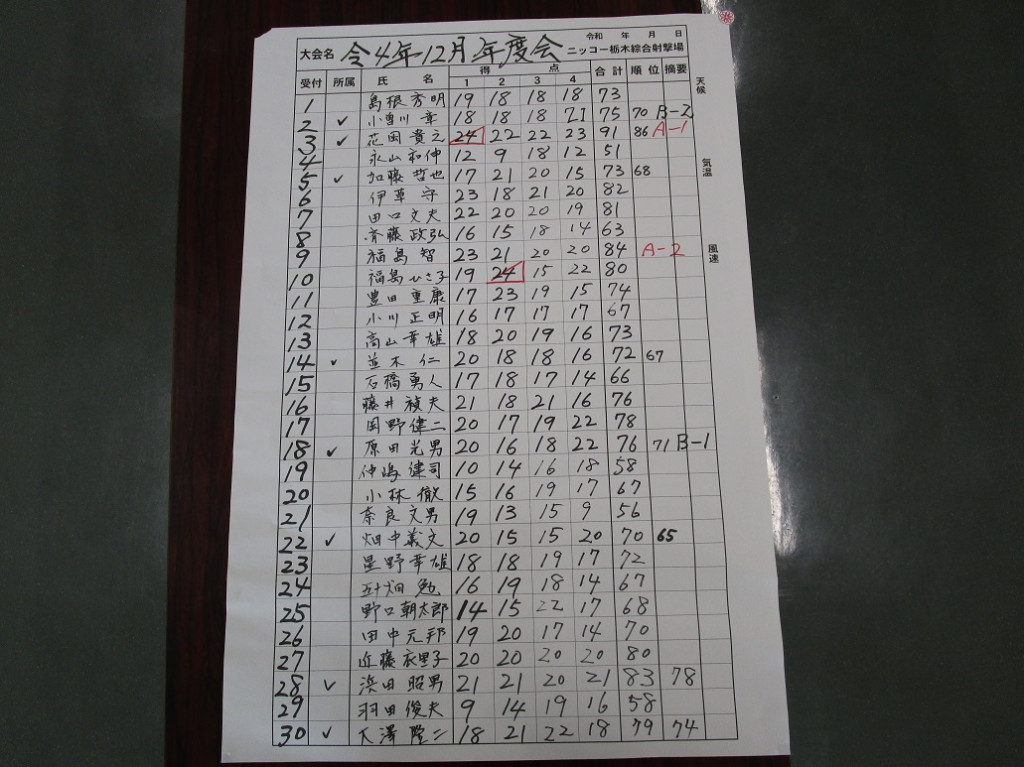 令和 年 月 日
大会名 令4年12月年度会 ニッコー栃木綜合射撃場
受付 所属 氏名 得点 1 2 3 4 合計 順位 摘要
天候
気温
風速
1 島根秀明 19 18 18 18 73
2 ✓ 小曽川幸 18 18 18 21 75 70 B-2
3 ✓ 花田貴之 24 22 22 23 91 86 A-1
4 永山和伸 12 9 18 12 51
5 ✓ 加藤哲也 17 21 20 15 73 68
6 伊草守 23 18 21 20 82
7 田口文夫 22 20 20 19 81
8 斉藤政弘 16 15 18 14 63
9 福島智 23 21 20 20 84 A-2
10 福島ひさ子 19 24 15 22 80
11 豊田重康 17 23 19 15 74
12 小川正明 16 17 17 17 67
13 高山幸雄 18 20 19 16 73
14 ✓ 並木仁 20 18 18 16 72 67
15 石橋勇人 17 18 17 14 66
16 藤井禎夫 21 18 21 16 76
17 岡野偉二 20 17 19 22 78
18 ✓ 原田光男 20 16 18 22 76 71 B-1
19 仲嶋健司 10 14 16 18 58
20 小林徹 15 16 19 17 67
21 奈良文男 19 13 15 9 56
22 ✓ 畑中義文 20 15 15 20 70 65
23 星野幸雄 18 18 19 17 72
24 五十畑勉 16 19 18 14 67
25 野口朝太郎 14 15 22 17 68
26 田中元邦 19 20 17 14 70
27 近藤衣里子 20 20 20 20 80
28 ✓ 浜田昭男 21 21 20 21 83 78
29 羽田俊夫 9 14 19 16 58
30 ✓ 大澤隆二 18 21 22 18 79 74